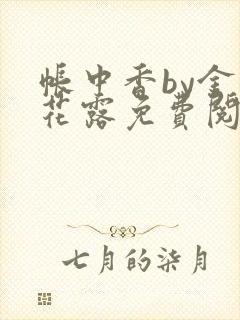 帳中香by金
花露免費閱
七月的柒月